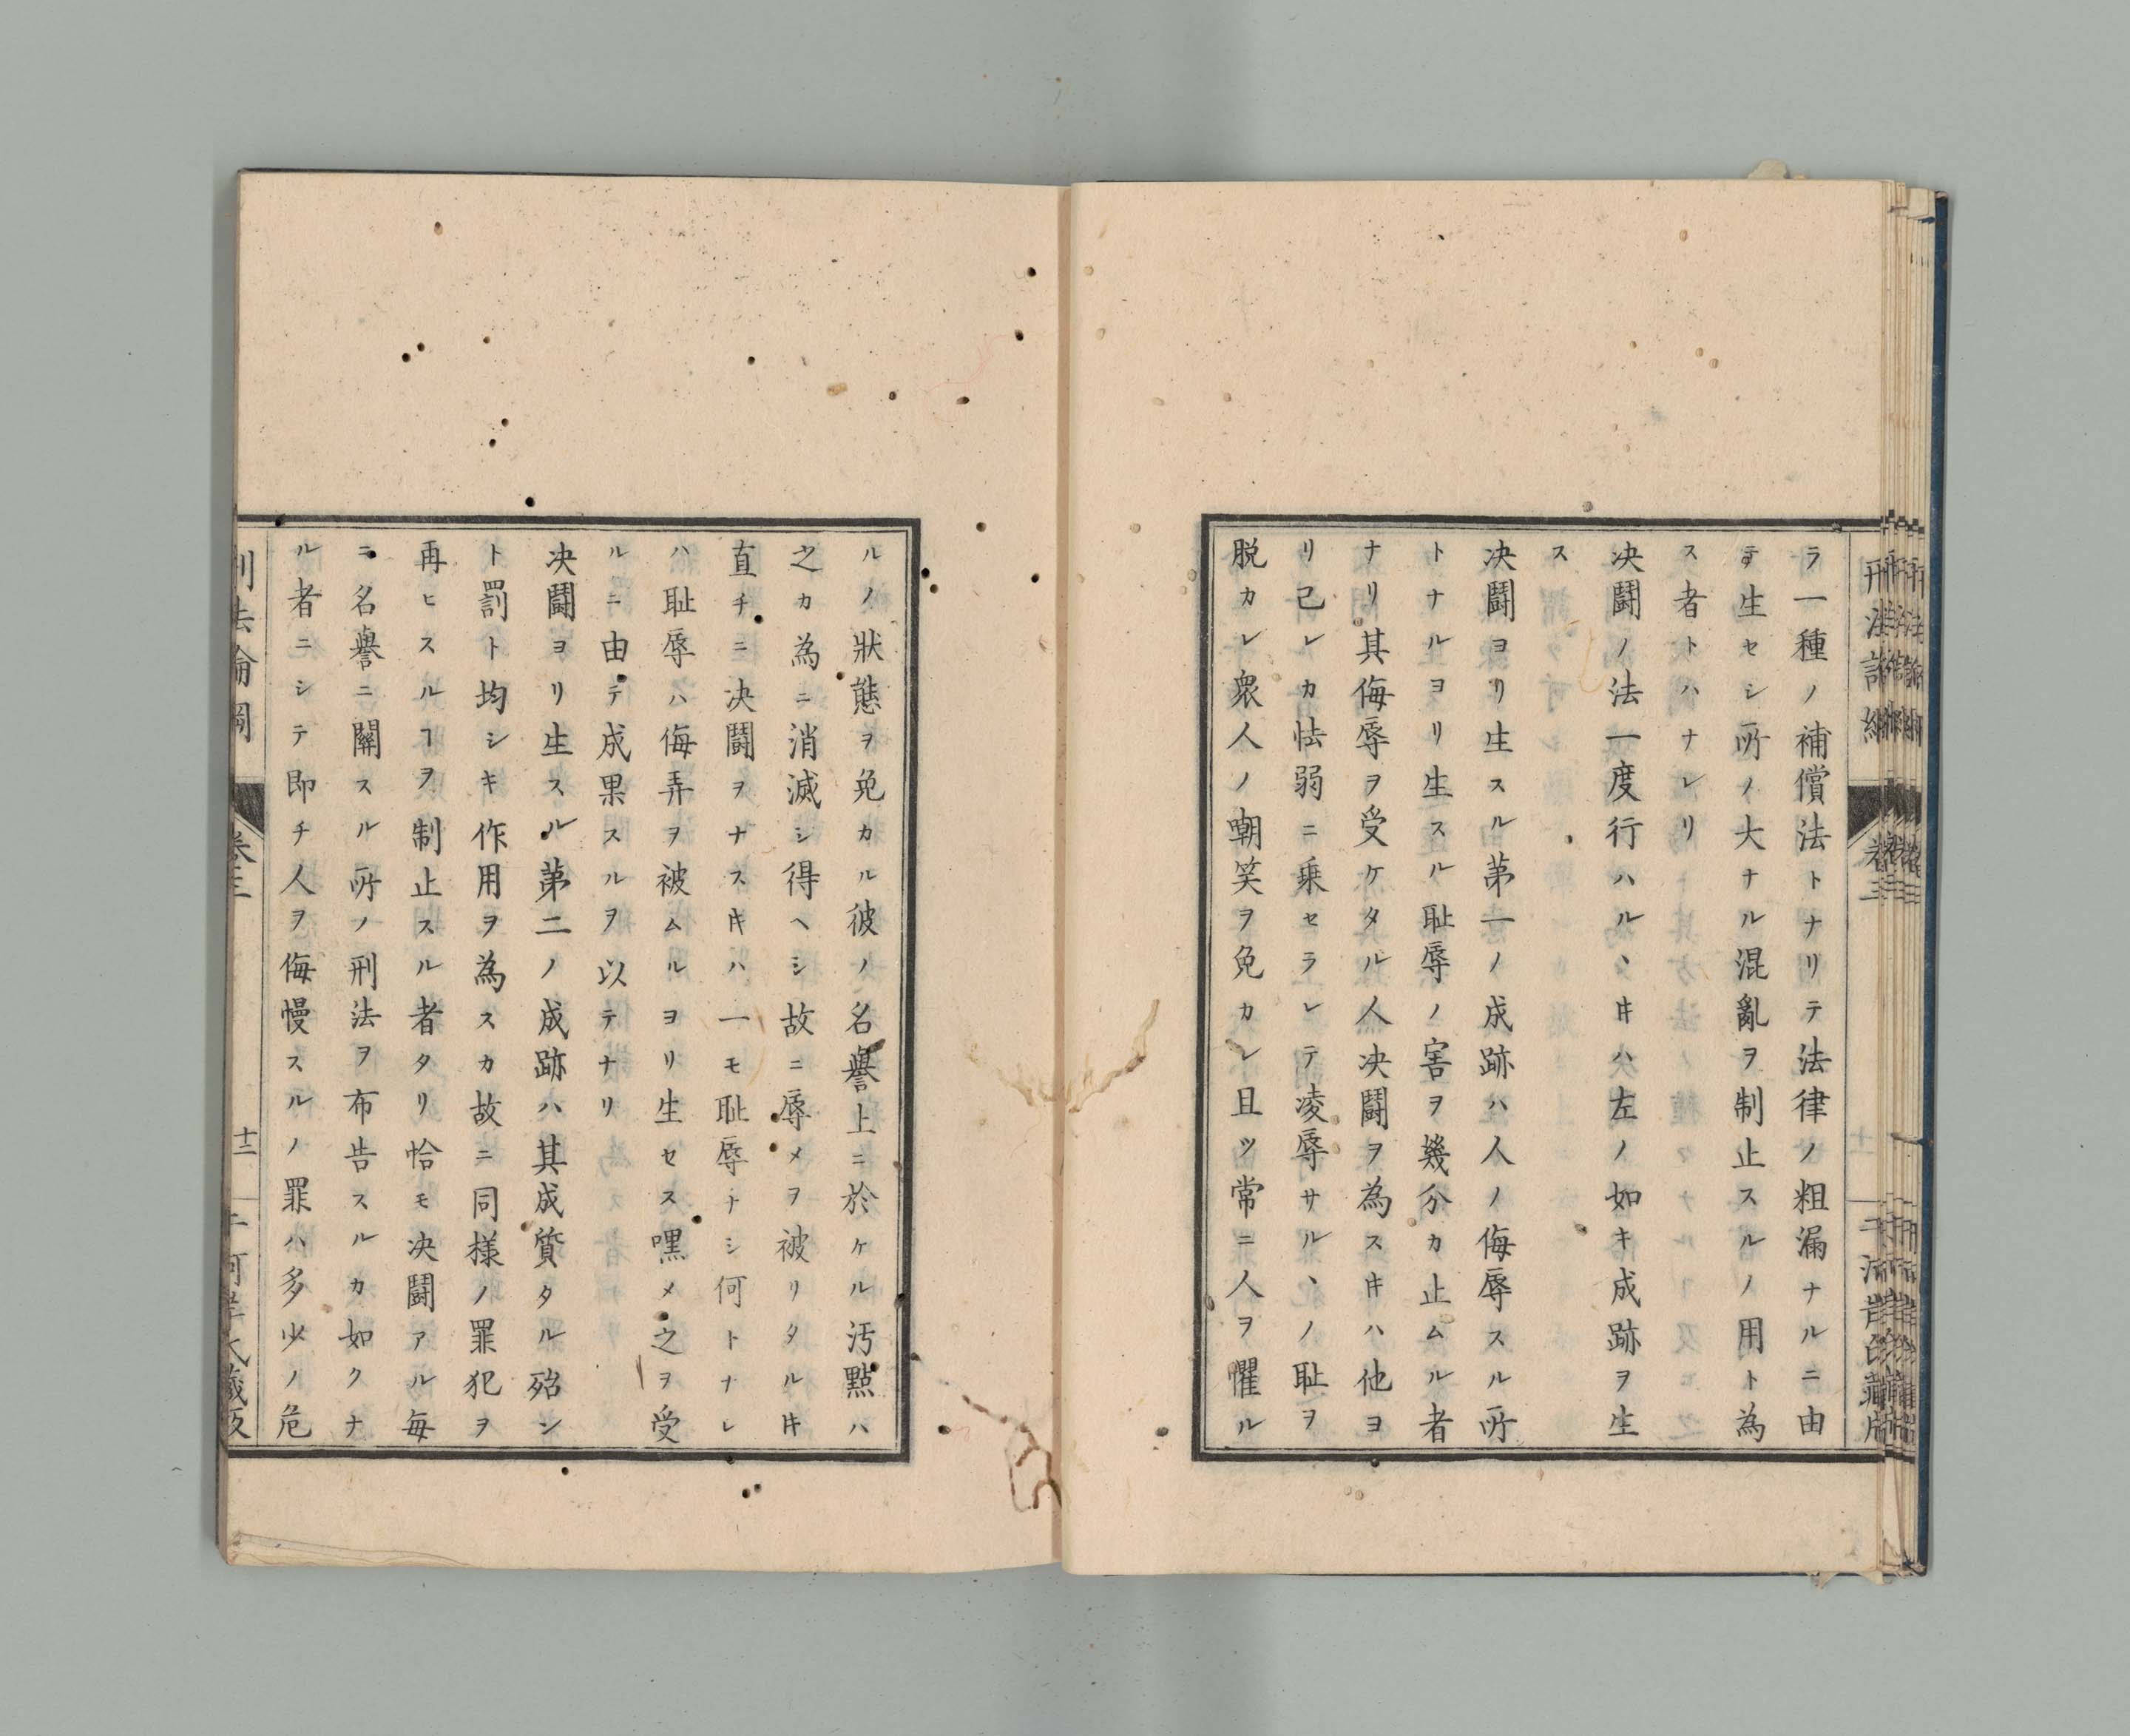 ラ一種ノ補償法トナリテ法律ノ粗漏ナルニ由
テ生セシ所ノ大ナル混亂ヲ制止スルノ用ト為
ス者トハナレリ
决鬪ノ法一度行ハル、𪜈ハ左ノ如キ成跡ヲ生
ス
决鬪ヨリ生スル第一ノ成跡ハ人ノ侮辱スル所
トナルヨリ生スル耻辱ノ害ヲ幾分カ止ムル者
ナリ其侮辱ヲ受ケタル人决鬪ヲ為スキハ他ヨ
リ己レカ怯弱ニ乗セラレテ凌辱サル、ノ耻ヲ
脱カレ衆人ノ嘲笑ヲ免カレ且ツ常ニ人ヲ懼ル
ルノ狀態ヲ免カル彼ノ名譽上ニ於ケル汚點ハ
之カ為ニ消滅シ得ヘシ故ニ辱メヲ被リタルキ
直チニ决鬪ヲナスキハ一モ耻辱ナシ何トナレ
ハ耻辱ハ侮弄ヲ被ムルヨリ生セス嘿メ之ヲ受
ルニ由テ成果スルヲ以テナリ
决鬪ヨリ生スル第二ノ成跡ハ其成質タル殆ン
ト罰ト均シキ作用ヲ為スカ故ニ同様ノ罪犯ヲ
再ヒスルヿヲ制止スル者タリ恰モ决鬪アル毎
ニ名譽ニ關スル所ノ刑法ヲ布告スルカ如クナ
ル者ニシテ即チ人ヲ侮慢スルノ罪ハ多少ノ危
刑法論綱
卷三
十二